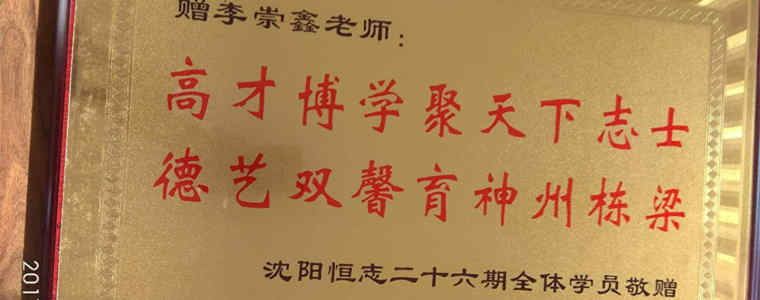 赠李崇鑫老师：
高才博学聚天下志士
德艺双馨育神州栋梁
沈阳恒志二十六期全体学员敬赠